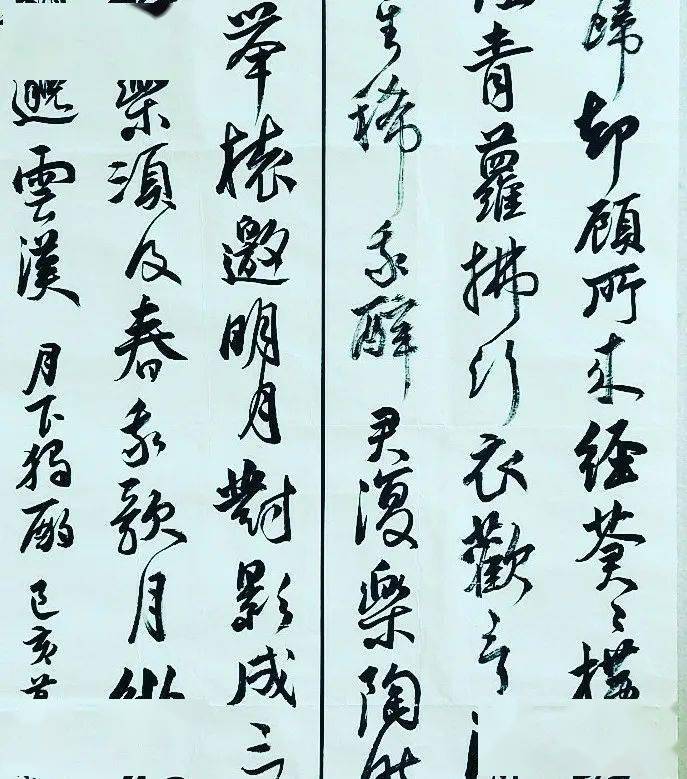 歸却顧所来經蒼〻横
青蘿拂行衣歡言
星稀我醉君復樂陶然
举杯邀明月對影成三
樂須及春我歌月徘
邈雲漢 月下獨酌 己亥